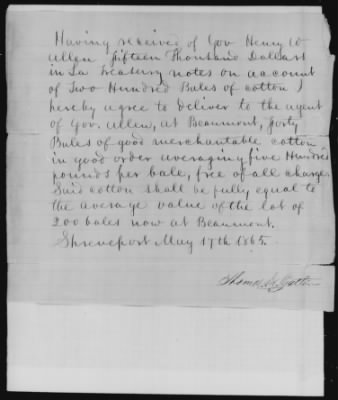 Having received of Gov Henry W
Allen fifteen Thousand Dollars
in La Treasury notes on account
of Two Hundred Bales of cotton I
hereby agree to deliver to the agent
of Gov. Allen, at Beaumont, forty
Bales of good merchantable cotton
in good order averaging five Hundred
pounds per bale, free of all charge.
Said cotton shall be fully equal to
the average value of the lot of
200 bales now at Beaumont.
Shreveport May 17th 1865.
Thomas